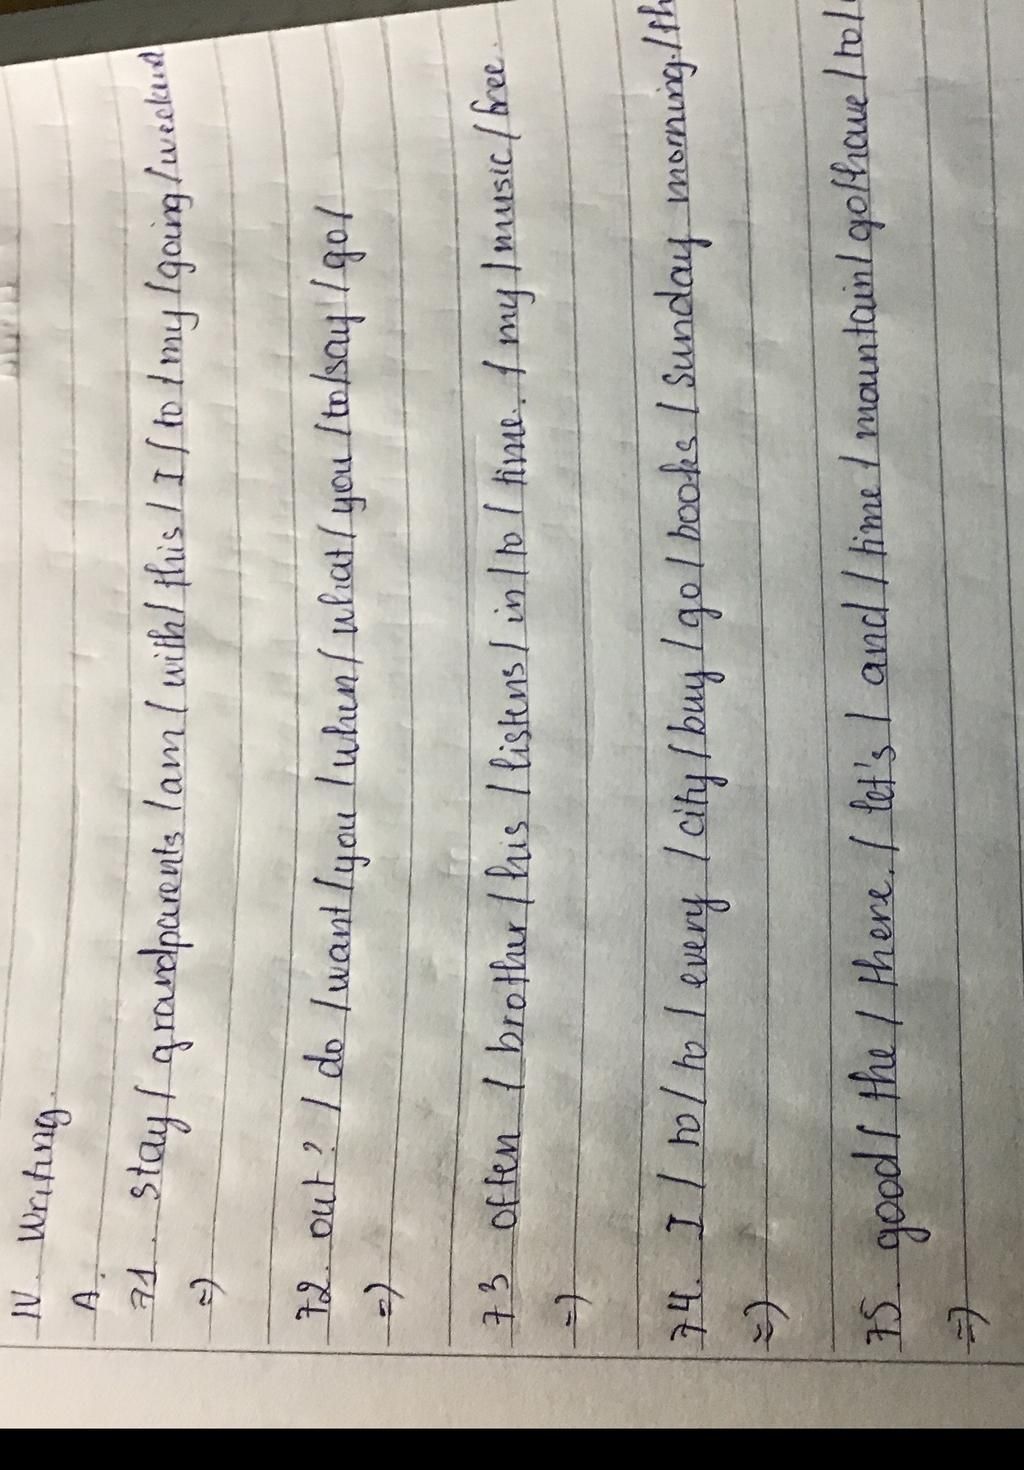 IV. Writing.
A.
71. stay / grandparents / am / with / this / I / to / my / going / weekend
=)
72. out? / do / want / you / when / what / you / to / say / go /
=)
73 often / brother / his / listens / in / to / time. / my / music / free.
=)
74. I / to / to / every / city / buy / go / books / Sunday morning. / th
=)
75. good / the / there. / let's / and / time / mountain / go / have / to /
=)